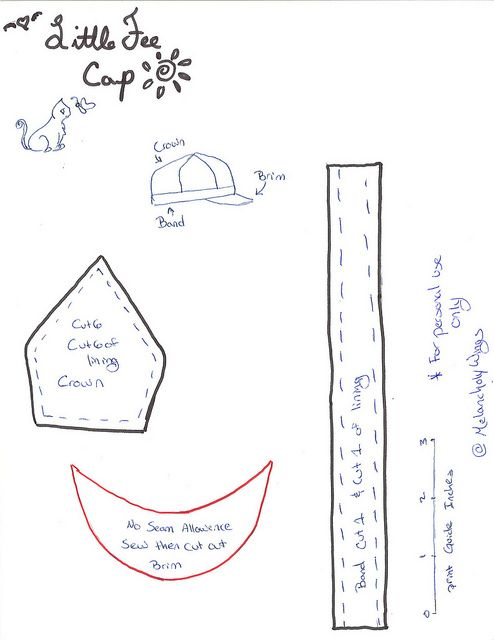 Little Fee
Cap
Crown
Brim
Band
Cut 6
Cut 6 of
lining
Crown
No Seam Allowence
Sew then cut out
Brim
Band Cut 1 & Cut 1 of lining
* For personal use
only
@ MelancholyWings
0 1 2 3
print Guide Inches